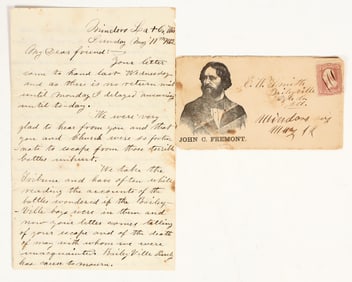 Mindoro La X Co, Wis
Sunday May 11th 1862
My Dear friend:—
Your letter
came to hand last Wednesday
and as there is no return mail
until Monday I delayed answering
until to-day.
We were very
glad to hear from you and that
you and Church were so fortu-
nate to escape from those terrible
battles unhurt.
We take the
Tribune and have often while
reading the accounts of the
battles wondered if the Bailey-
Ville boys were in them and
now your letter comes telling
of your escape and of the death
of many with whom we were
unacquainted Bailey Ville surely
has cause to mourn.
JOHN C. FREMONT.
Smith
Baileyville
Ill.
Mindoro
May